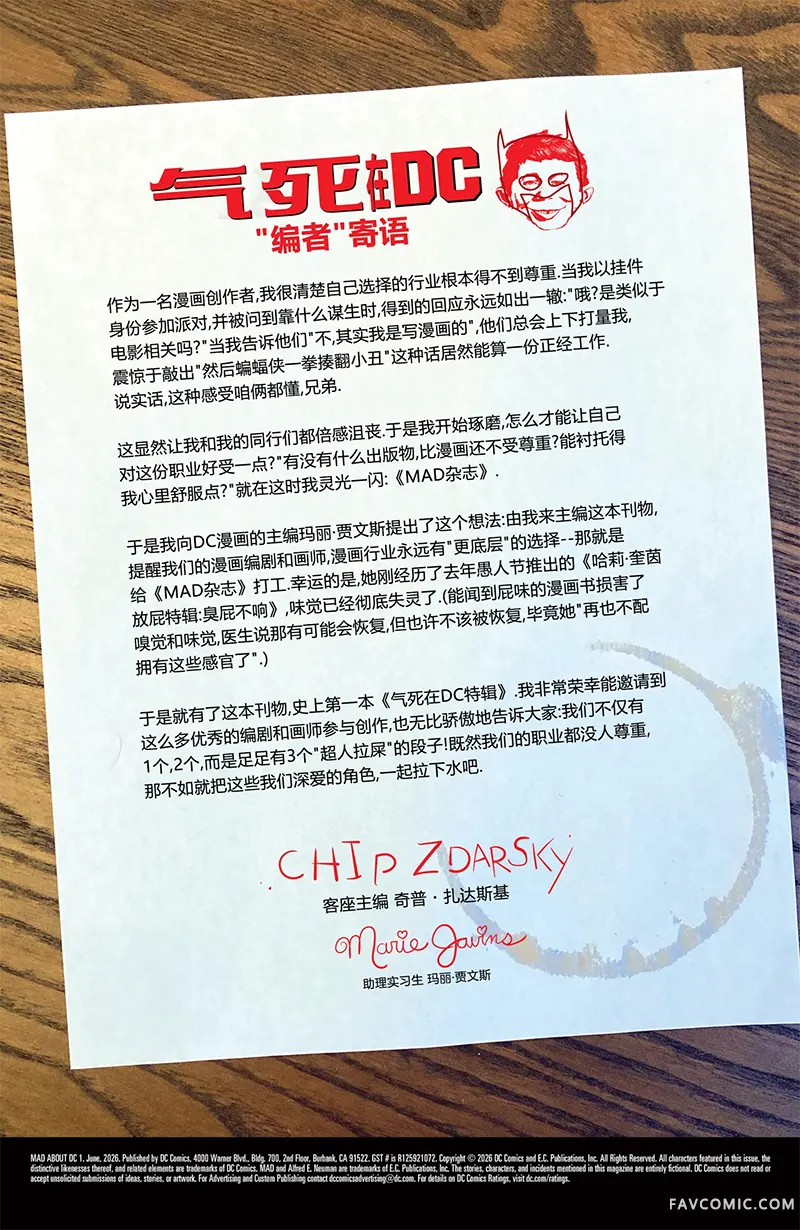 气死在DC
"编者"寄语
作为一名漫画创作者,我很清楚自己选择的行业根本得不到尊重.当我以挂件
身份参加派对,并被问到靠什么谋生时,得到的回应永远如出一辙:"哦?是类似于
电影相关吗?"当我告诉他们"不,其实我是写漫画的",他们总会上下打量我,
震惊于敲出"然后蝙蝠侠一拳揍翻小丑"这种话居然能算一份正经工作.
说实话,这种感受咱俩都懂,兄弟.
这显然让我和我的同行们都倍感沮丧.于是我开始琢磨,怎么才能让自己
对这份职业好受一点?"有没有什么出版物,比漫画还不受尊重?能衬托得
我心里舒服点?"就在这时我灵光一闪:《MAD杂志》.
于是我向DC漫画的主编玛丽·贾文斯提出了这个想法:由我来主编这本刊物,
提醒我们的漫画编剧和画师,漫画行业永远有"更底层"的选择--那就是
给《MAD杂志》打工.幸运的是,她刚经历了去年愚人节推出的《哈莉·奎茵
放屁特辑:臭屁不响》,味觉已经彻底失灵了.(能闻到屁味的漫画书损害了
嗅觉和味觉,医生说那有可能会恢复,但也许不该被恢复,毕竟她"再也不配
拥有这些感官了".)
于是就有了这本刊物,史上第一本《气死在DC特辑》.我非常荣幸能邀请到
这么多优秀的编剧和画师参与创作,也无比骄傲地告诉大家:我们不仅有
1个,2个,而是足足有3个"超人拉屎"的段子!既然我们的职业都没人尊重,
那不如就把这些我们深爱的角色,一起拉下水吧.
CHIP ZDARSKY
客座主编 奇普·扎达斯基
Marie Javins
助理实习生 玛丽·贾文斯
MAD ABOUT DC 1. June, 2026. Published by DC Comics, 4000 Warner Blvd., Bldg. 700, 2nd Floor, Burbank, CA 91522. GST # is R125921072. Copyright © 2026 DC Comics and E.C. Publications, Inc. All Rights Reserved. All characters featured in this issue, the
distinctive likenesses thereof, and related elements are trademarks of DC Comics. MAD and Alfred E. Neuman are trademarks of E.C. Publications, Inc. The stories, characters, and incidents mentioned in this magazine are entirely fictional. DC Comics does not read or
accept unsolicited submissions of ideas, stories, or artwork. For Advertising and Custom Publishing contact dccomicsadvertising@dc.com. For details on DC Comics Ratings, visit dc.com/ratings.
FAVCOMIC.COM